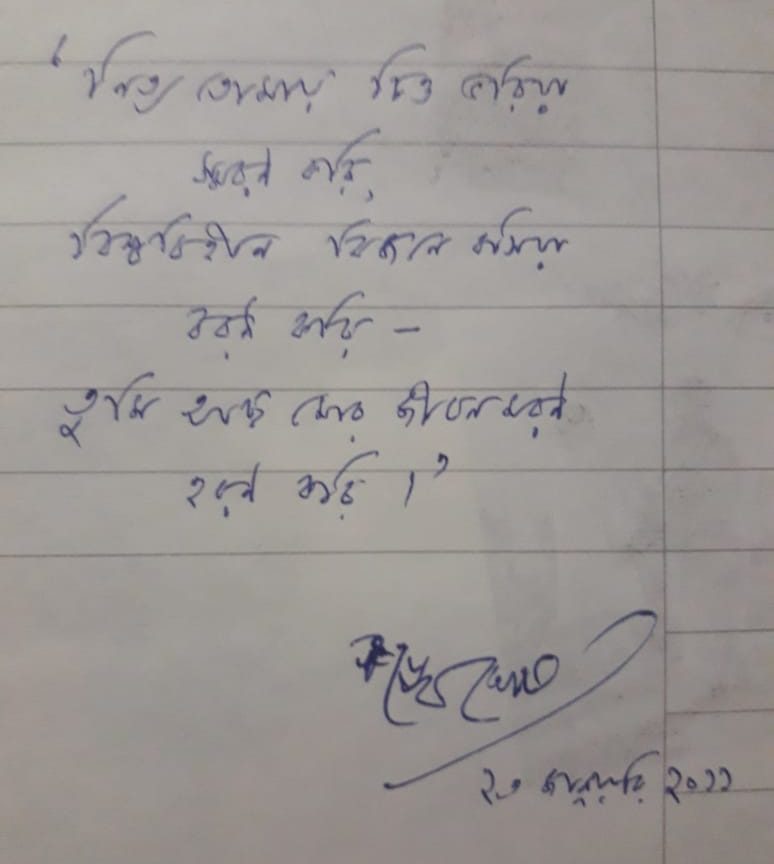 ‘নিত্য তোমায় চিত্ত ভরিয়া
স্মরণ করি,
বিশ্ববিহীন বিজনে বসিয়া
বরণ করি –
তুমি আছ মোর জীবনমরণ
হরণ করি ।’
শঙ্খ ঘোষ
জানুয়ারি ২০১১